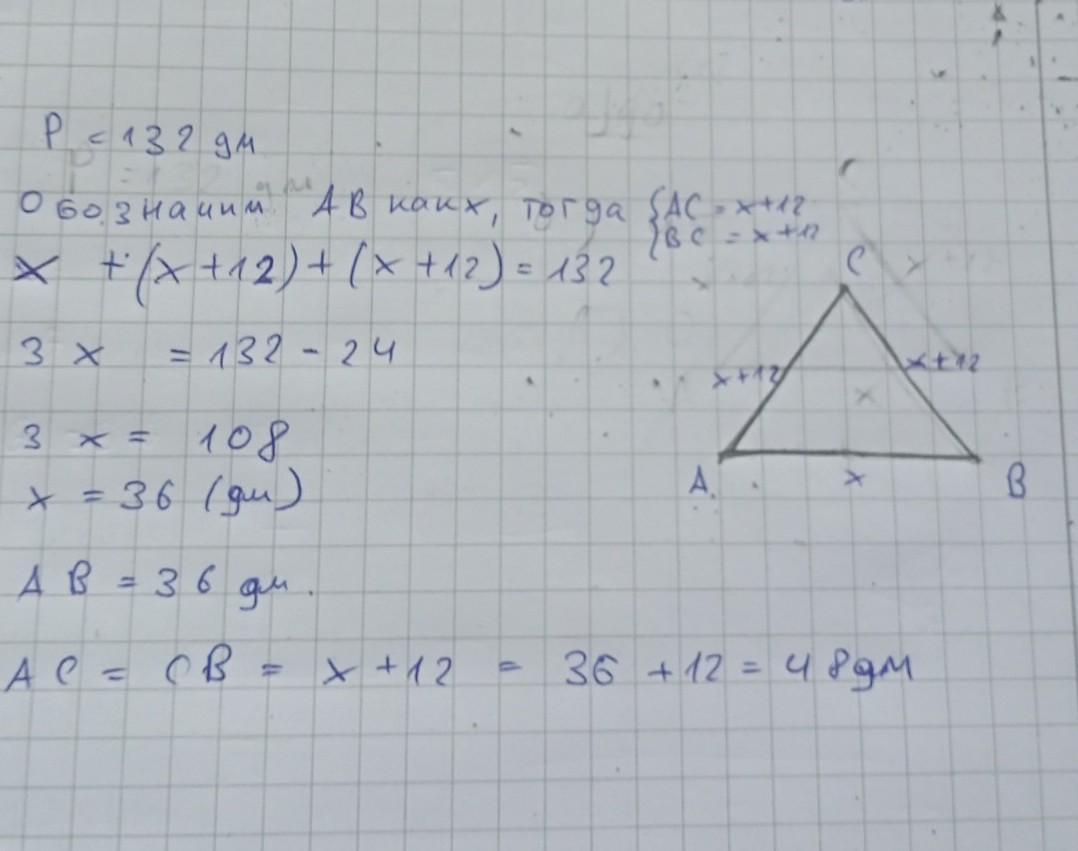 P = 132 дм
Обозначим AB как x, тогда { AC = x+12
{ BC = x+12
x + (x+12) + (x+12) = 132
3x = 132 - 24
3x = 108
x = 36 (дм)
AB = 36 дм.
AC = CB = x+12 = 36 + 12 = 48дм
C
x+12
x+12
A
x
B